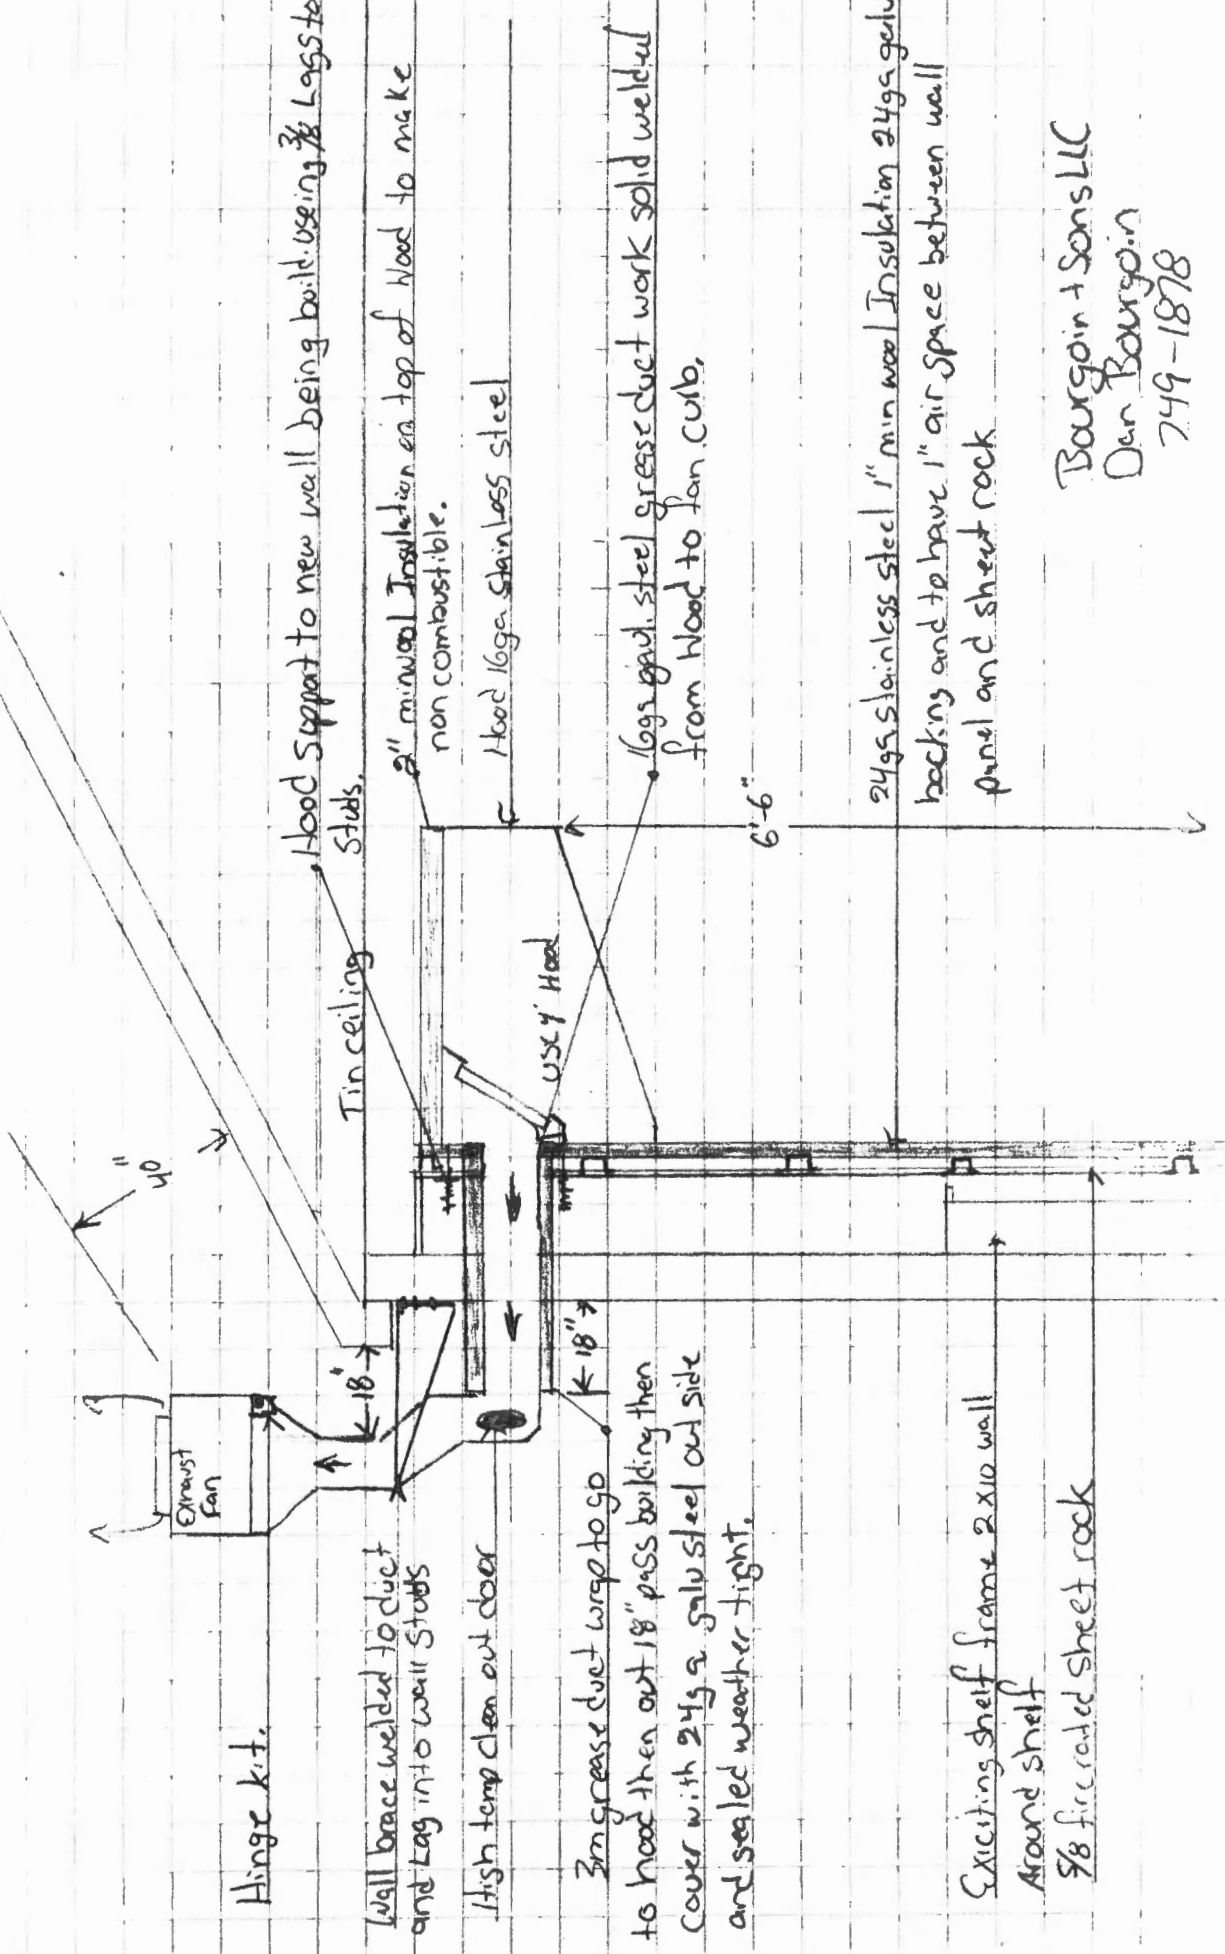 Hinge Kit.
Wall brace welded to duct
and Lag into wall Studs
High temp clean out door
3m grease duct wrap to go
to hood then out 18" pass building then
Cover with 24ga galv steel out side
and sealed weather tight.
Exiciting shelf frame 2x10 wall
Around shelf
5/8 fire rated sheet rock
Exhaust
Fan
18"
18"
40"
Tin ceiling
use 4' Hood
6'-6"
Hood Support to new wall being build useing 3/8 Lags to
Studs.
2" minwool Insulation on top of Hood to make
non combustible.
Hood 16ga Stainless Steel
16ga galv. steel grease duct work solid welded
from Hood to fan curb.
24ga stainless steel 1" min wool Insulation 24ga galv
backing and to have 1" air space between wall
panel and sheet rock
Bourgoin + Sons LLC
Dan Bourgoin
749-1878